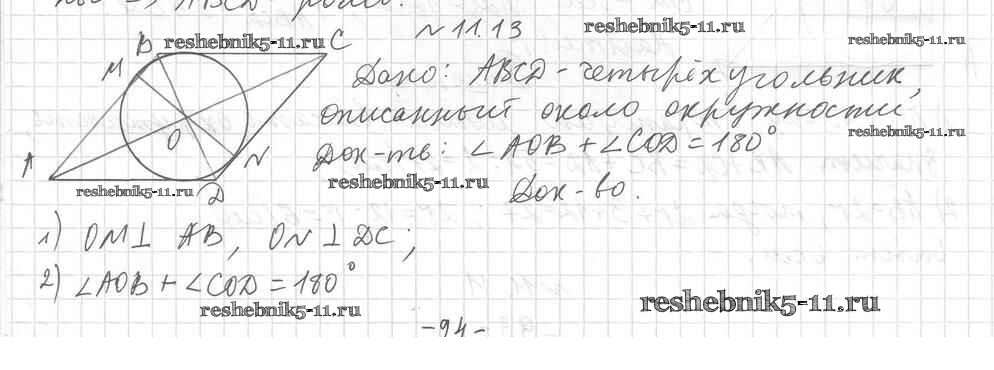 => ABCD - ромб.
№ 11.13
reshebnik5-11.ru
reshebnik5-11.ru
reshebnik5-11.ru
B C
M
O
A
N
D
reshebnik5-11.ru
Дано: ABCD - четырёхугольник,
описанный около окружности
reshebnik5-11.ru
Док-ть: ∠AOB + ∠COD = 180°
reshebnik5-11.ru
Док-во.
1) OM ⊥ AB, ON ⊥ DC;
2) ∠AOB + ∠COD = 180°
reshebnik5-11.ru
reshebnik5-11.ru
-94-